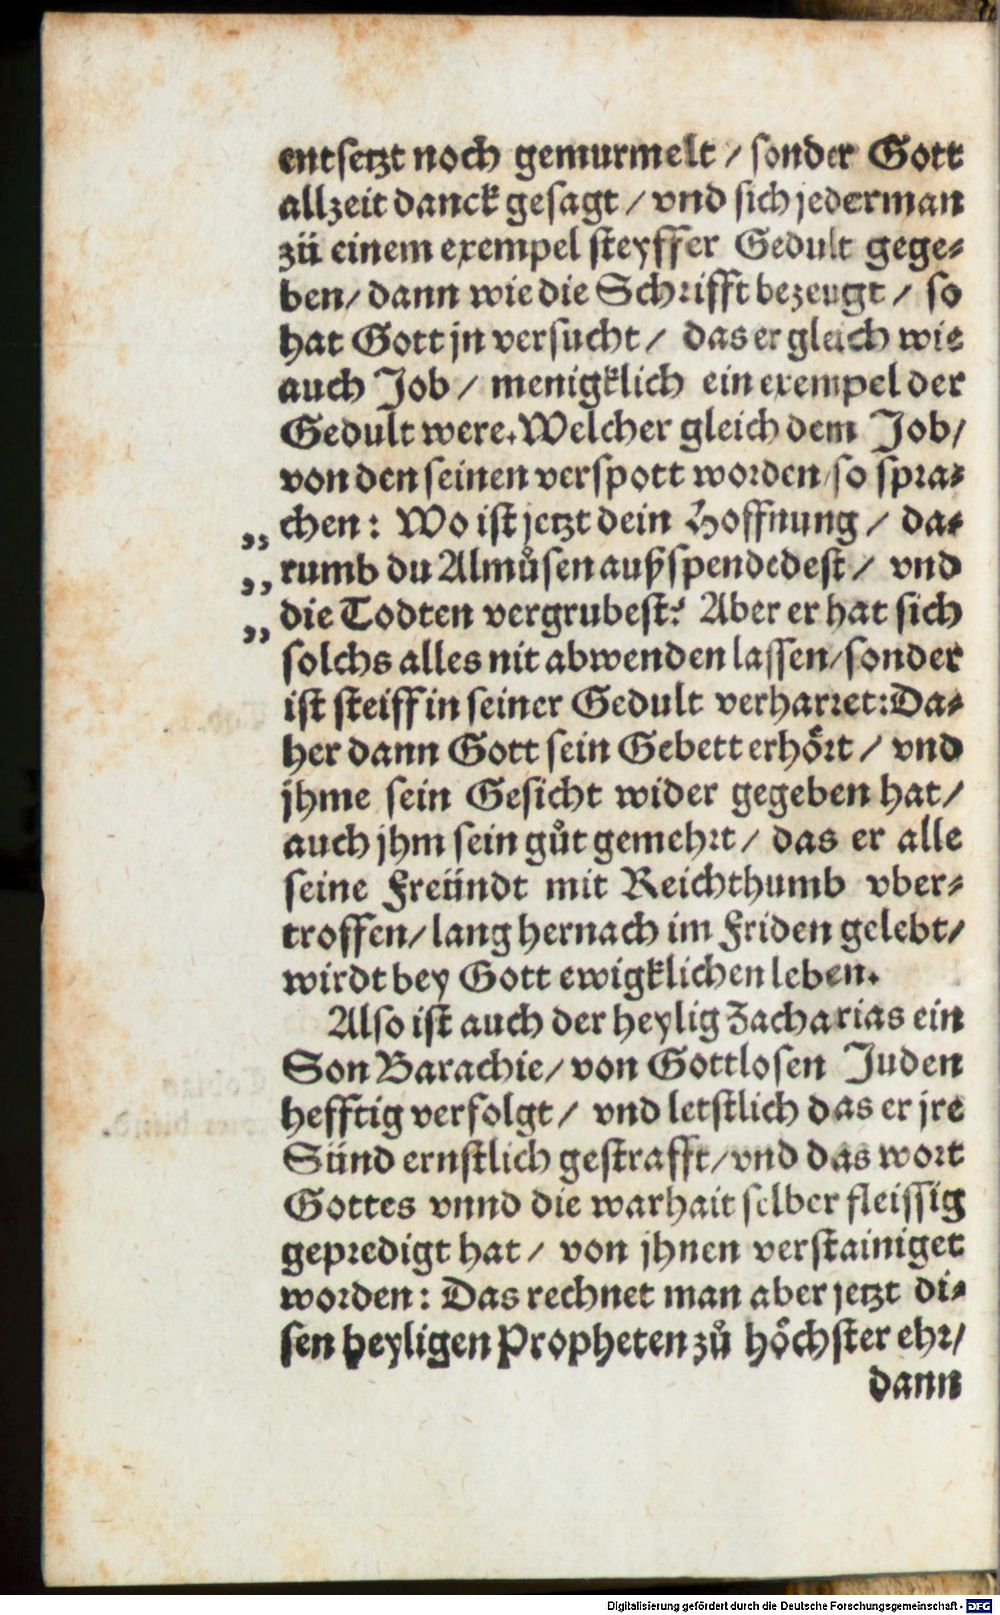 entsetzt noch gemurmelt / sonder Gott
allzeit danck gesagt / vnd sich jederman
zü einem exempel steyffer Gedult gege-
ben / dann wie die Schrifft bezeugt / so
hat Gott jn versucht / das er gleich wie
auch Job / menigklich ein exempel der
Gedult were. Welcher gleich dem Job /
von den seinen verspott worden / so spra-
„ chen: Wo ist jetzt dein Hoffnung / da-
„ rumb du Almůsen außspendedest / vnd
„ die Todten vergrubest? Aber er hat sich
solchs alles nit abwenden lassen / sonder
ist steiff in seiner Gedult verharret: Da-
her dann Gott sein Gebett erhört / vnd
jhme sein Gesicht wider gegeben hat /
auch jhm sein gůt gemehrt / das er alle
seine Freündt mit Reichthumb vber-
troffen / lang hernach im Friden gelebt /
wirdt bey Gott ewigklichen leben.
Also ist auch der heylig Zacharias ein
Son Barachie / von Gottlosen Juden
hefftig verfolgt / vnd letstlich das er jre
Sünd ernstlich gestrafft / vnd das wort
Gottes vnnd die warhait selber fleissig
gepredigt hat / von jhnen verstainiget
worden: Das rechnet man aber jetzt di-
sen heyligen Propheten zů höchster ehr /
dann
Digitalisierung gefördert durch die Deutsche Forschungsgemeinschaft - DFG